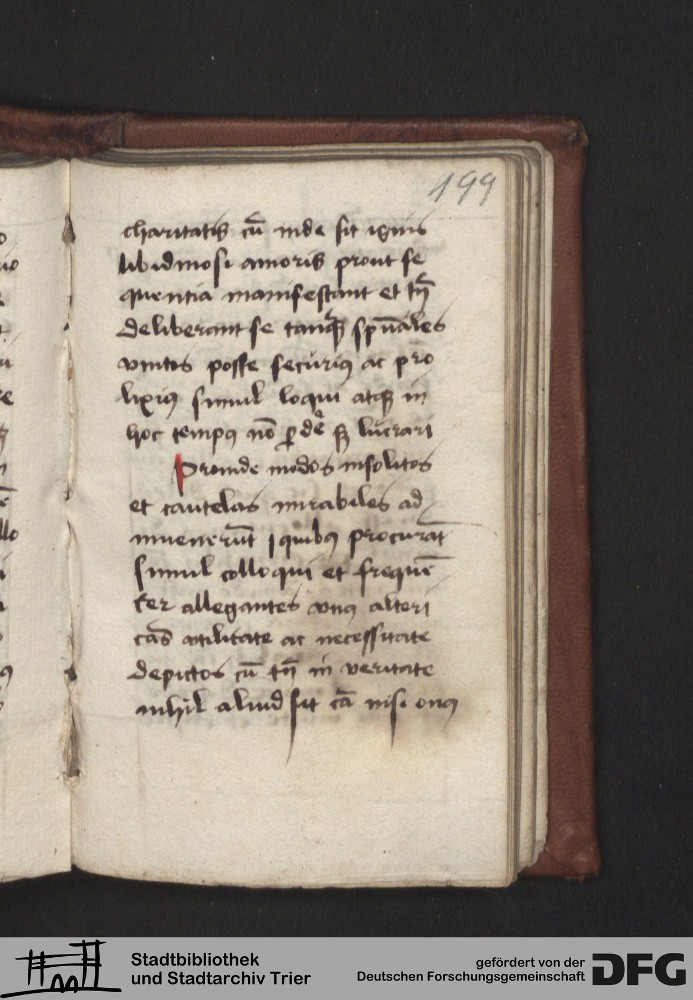 199
charitatis cū inde sit ignis
libidinosi amoris prout se
quentia manifestant et tn̄
deliberant se tanqȝ spūales
vintos posse securiꝰ ac pro
lixiꝰ simul loqui atqȝ in
hoc tempꝰ nō ꝑdeͬ sȝ lucrari
Proinde modos insolitos
et cautelas mirabiles ad
invenerūt ī quibꝰ procurāt
simul colloqui et frequē
ter allegantes vnꝰ alteri
cās vtilitate ac necessitate
depictos cū tn̄ in veritate
nihil aliud sit cā nisi onꝰ
Stadtbibliothek
und Stadtarchiv Trier
gefördert von der
Deutschen Forschungsgemeinschaft
DFG